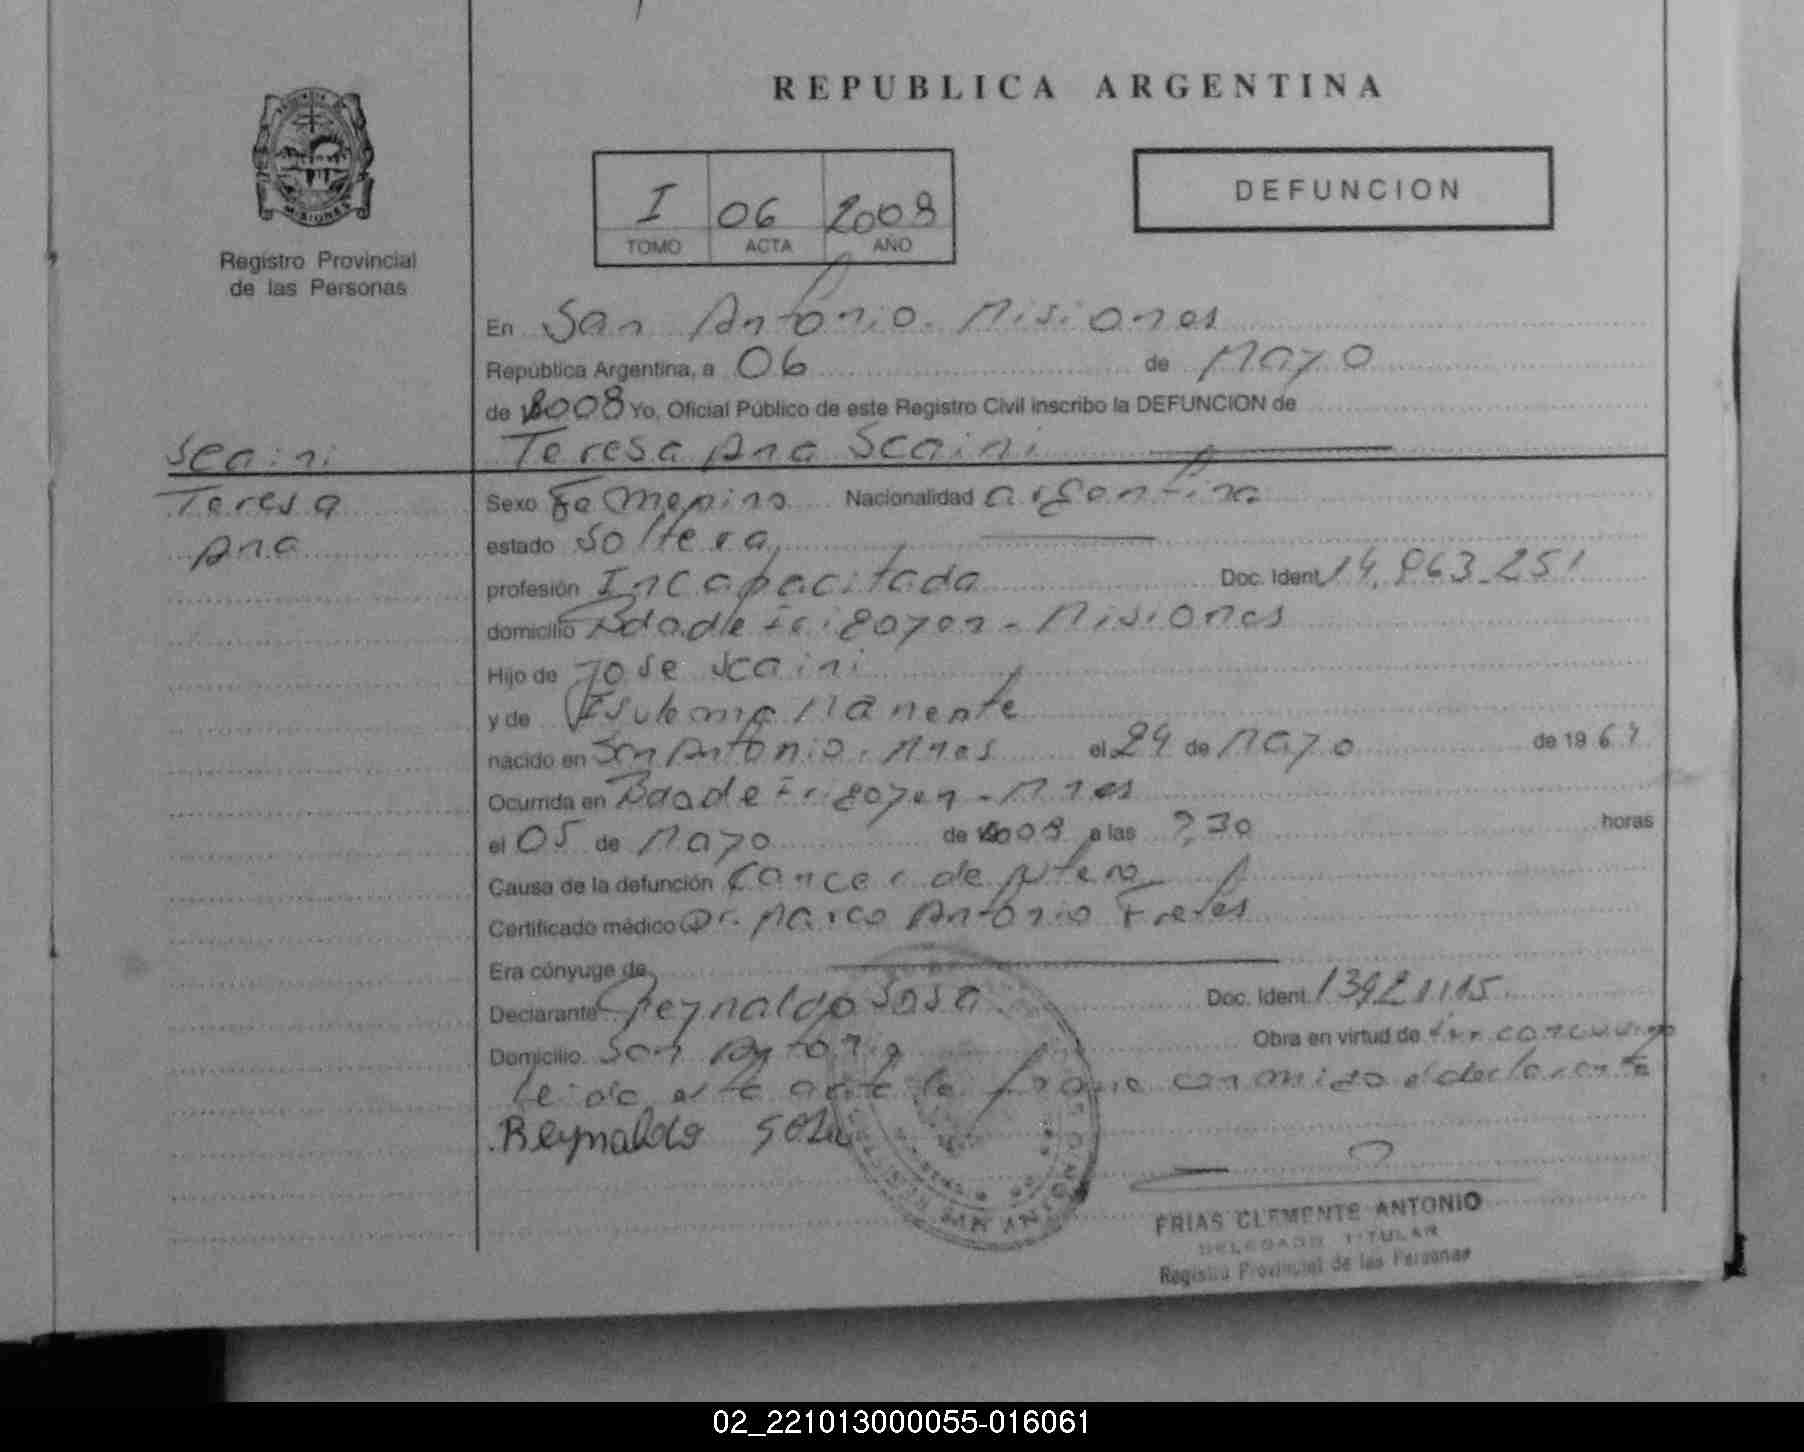 REPUBLICA ARGENTINA
PROVINCIA DE
MISIONES
Registro Provincial
de las Personas
I 06 2008
TOMO ACTA AÑO
DEFUNCION
En San Antonio. Misiones
República Argentina, a 06 de Mayo
de 2008 Yo, Oficial Público de este Registro Civil inscribo la DEFUNCION de
Teresa Ana Scaini
Scaini
Teresa
Ana
Sexo Femenino Nacionalidad argentina
estado Soltera
profesión Incapacitada Doc. Ident. 14.863.251
domicilio Bdo de Irigoyen - Misiones
Hijo de Jose Scaini
y de Manente
nacido en San Antonio. Mnes el 24 de Mayo de 196
Ocurrida en Bdo de Irigoyen - Mnes
el 05 de Mayo de 2008 a las 30 horas
Causa de la defunción Cancer de utero
Certificado médico Dr. Marco Antonio Fretes
Era cónyuge de
Declarante Reynaldo Sosa Doc. Ident. 13921115
Domicilio San Antonio Obra en virtud de
Leida el acta la firma conmigo el declarante
Reynaldo Sosa
SAN ANTONIO
FRIAS CLEMENTE ANTONIO
DELEGADO TITULAR
Registro Provincial de las Personas
02_221013000055-016061